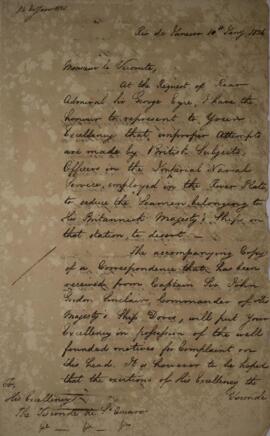 Rio de Janeiro 10th Jany. 1826
Monsieur le Vicomte,
At the Request of Rear
Admiral Sir George Eyre, I have the
honour to represent to Your
Excellency that, improper Attempts
are made by British Subjects,
Officers in the Imperial Naval
Service, employed in the River Plate,
to seduce the Seamen belonging to
His Britannick Majesty's Ships on
that station, to desert.
The accompanying Copy
of a Correspondence that has been
received from Captain Sir John
Gordon Sinclair, Commander of His
Majesty's Ship Doris, will put Your
Excellency in possession of the well
founded motives for Complaint on
this head. It is however to be hoped
that the exertions of His Excellency the
Viscount
His Excellency
The Viscount de St. Amaro